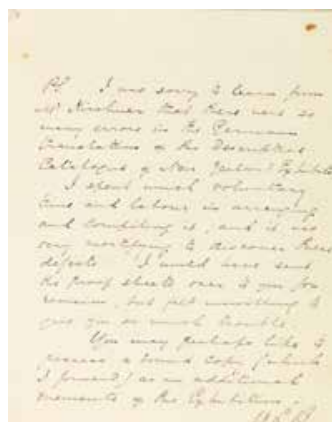 PS. I was sorry to learn from
Mr Kirchner that there were so
many errors in the German
translation of the Descriptive
Catalogue of New
I spent much voluntary
time and labour in arranging
and compiling it, and it is
very mortifying to discover these
defects. I would have sent
the proof sheets over to you for
revision, but felt unwilling to
give you so much trouble.
You may perhaps like to
possess a bound copy (which
I forward) as an additional
memento of the Exhibition.